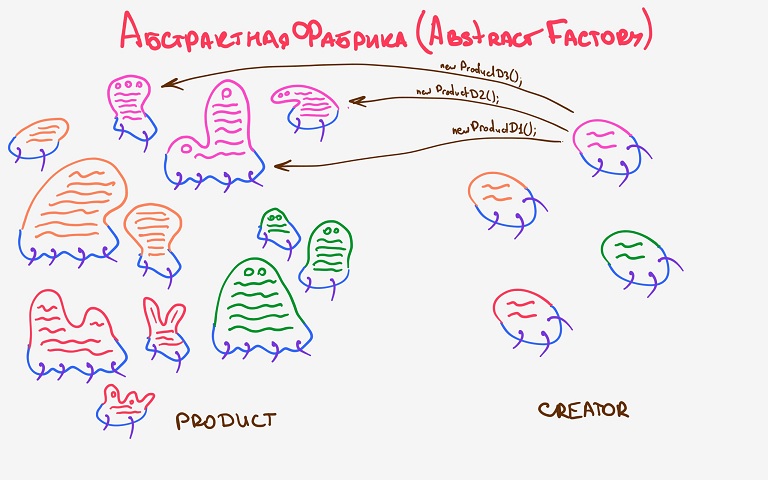 Абстрактная Фабрика (Abstract Factory)
new ProductD3();
new ProductD2();
new ProductD1();
PRODUCT
CREATOR